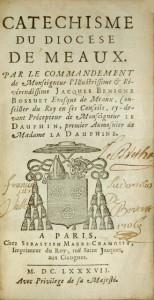 CATECHISME
DU DIOCESE
DE MEAUX.
PAR LE COMMANDEMENT
de Monseigneur l'Illustrissime & Re-
verendissime JACQUES BENIGNE
BOSSUET Evesque de Meaux, Con-
seiller du Roy en ses Conseils, cy-de-
vant Précepteur de Monseigneur LE
DAUPHIN, premier Aumosnier de
Madame LA DAUPHINE.
A PARIS,
Chez SEBASTIEN MABRE-CRAMOISY,
Imprimeur du Roy, ruë Saint Jacques,
aux Cicognes.
M. DC. LXXXVII.
Avec Privilege de sa Majesté.